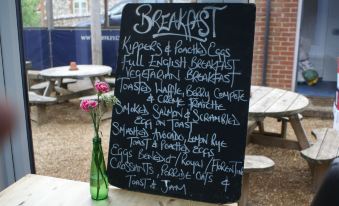 Breakfast
Kippers & Poached Eggs
Full English Breakfast
Vegetarian Breakfast
Toasted Waffle, Berry Compote
& Creme Fraiche
Smoked Salmon & Scrambled
Egg on Toast
Smashed Avocado, Lemon Rye
Toast & Poached Eggs
Eggs Benedict/Royal/Florentine
Croissants, Porridge Oats &
Toast & Jam